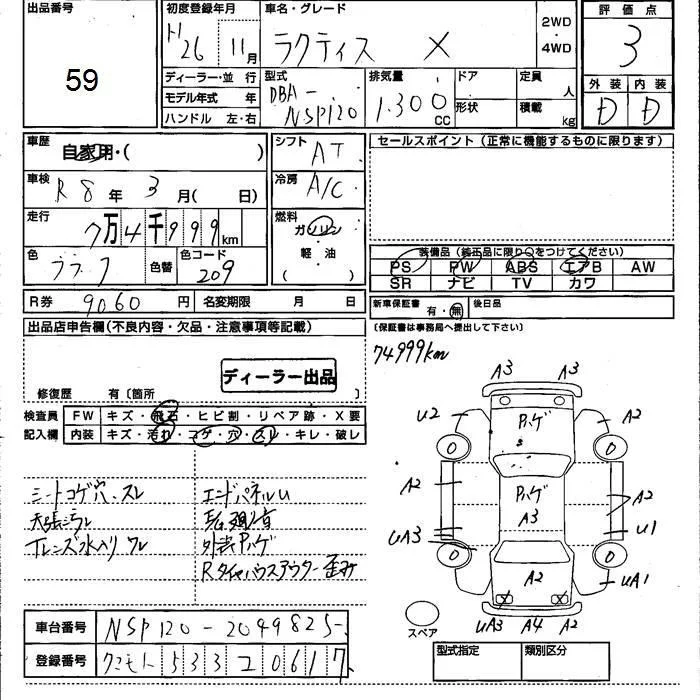 出品番号
59
初度登録年月
H 26 年 11 月
車名・グレード
ラクティス X
2WD
・
4WD
評価点
3
ディーラー・並 行
モデル年式 年
ハンドル 左・右
型式
DBA-
NSP120
排気量
1.300
CC
ドア
形状
定員
人
積載
kg
外装 内装
D D
車歴
自家用・( )
シフト
AT
セールスポイント (正常に機能するものに限ります)
車検
R 8 年 3 月 ( 日)
冷房
A/C
走行
7万4千999km
燃料
ガソリン
・
軽・油
( )
色
ブラック
色替
色コード
209
装備品 (純正品に限り○をつけてください)
PS PW ABS エアB AW
SR ナビ TV カワ
R券 9060 円 名変期限 月 日
新車保証書 有・無 後日品
(保証書は事務局へ提出して下さい)
出品店申告欄(不良内容・欠品・注意事項等記載)
ディーラー出品
修復歴 有〔箇所 〕
74999km
検査員
記入欄
FW キズ・飛石・ヒビ割・リペア跡・X要
内装 キズ・汚れ・コゲ・穴・スレ・キレ・破レ
シートコゲ穴、スレ
天張汚レ
Tレンズ水入り ワレ
エンドパネルU
外装Pハゲ
Rタイヤハウスアウター歪み
A3 A3
U2 Pハゲ A2
0 0
A2 Pハゲ A2
A3
UA3 U1
0 0
A2 UA1
X X
UA3 A4 A2
スペア
車台番号 NSP120-2049825-
登録番号 クマモト 533 ユ 0617
型式指定 類別区分